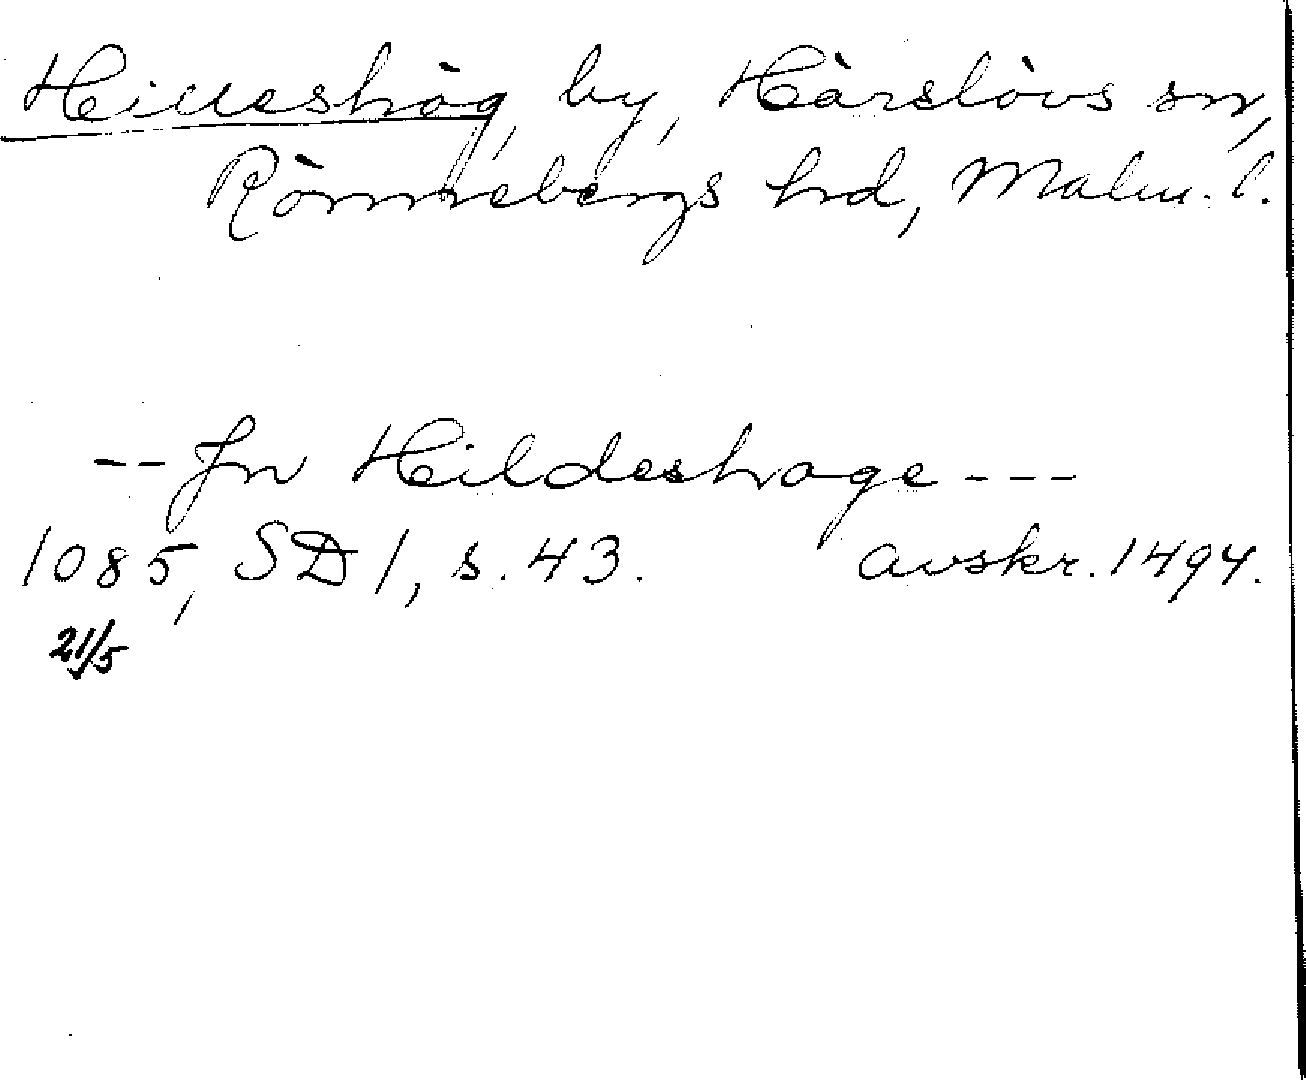 Hilleshög, by, Härslövs sn,
Rönnebergs hrd, Malm. l.
-- Jn Hildeshoge ---
1085, SD 1, s. 43. avskr. 1494.
21/5